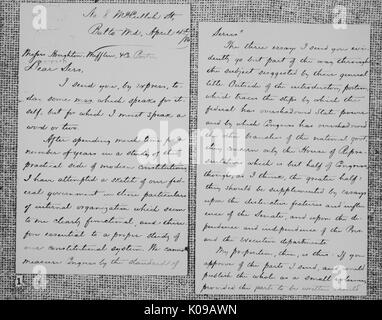 No 8 McCulloh St,
Balto Md, April 4th
Messrs Houghton, Mifflin, & Co.
Dear Sirs,
I send you, by express, to-
day some mss which speaks for it-
self, but for which I must speak a
word or two.
After spending much time for a
number of years in a study of the
practical side of modern constitutions,
I have attempted a sketch of our fed-
eral government in those particulars
of internal organization which seem
to me clearly functional, and there-
fore essential to a proper study of
our constitutional system. No
measure Congress by the standards of
1
Series"
The three essays I send you evi-
dently go but part of the way through
the subject suggested by their general
title. Outside of the introductory portion
which traces the steps by which the
federal has overshadowed State powers
and by which Congress has overshadowed
the other branches of the national govt
they concern only the House of Repre-
sentatives which is but half of Congress
though, as I think, the greater half.
they should be supplemented by essays
upon the distinctive features and influ-
ence of the Senate, and upon the de-
pendence and independence of the Pres
and the executive departments.
My proposition, then, is this: If you
approve of the parts I send,
publish the whole as a small volume
provided the parts to be written
alamy
K09AWN